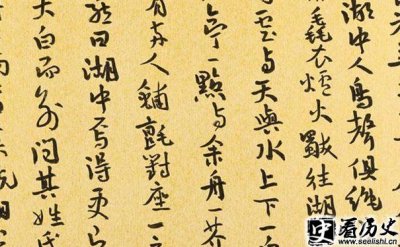 湖中人鳥聲俱絕
毳衣爐火獨往湖
与天與水上下一
亭一點与余舟芥
有兩人鋪氈對座一
曰湖中焉得更有
大白而別問其姓氏
看历史
www.seelishi.cn